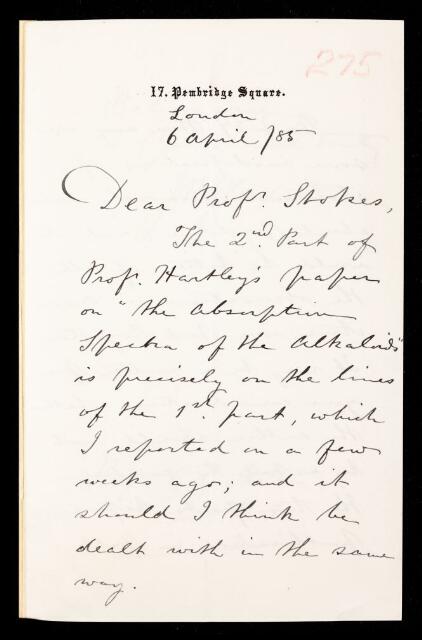 275
17. Pembridge Square.
London
6 April /85
Dear Profr. Stokes,
The 2nd. Part of
Profr. Hartley's paper
on "the Absorption
Spectra of the Alkaloids"
is precisely on the lines
of the 1st. part, which
I reported on a few
weeks ago; and it
should I think be
dealt with in the same
way.